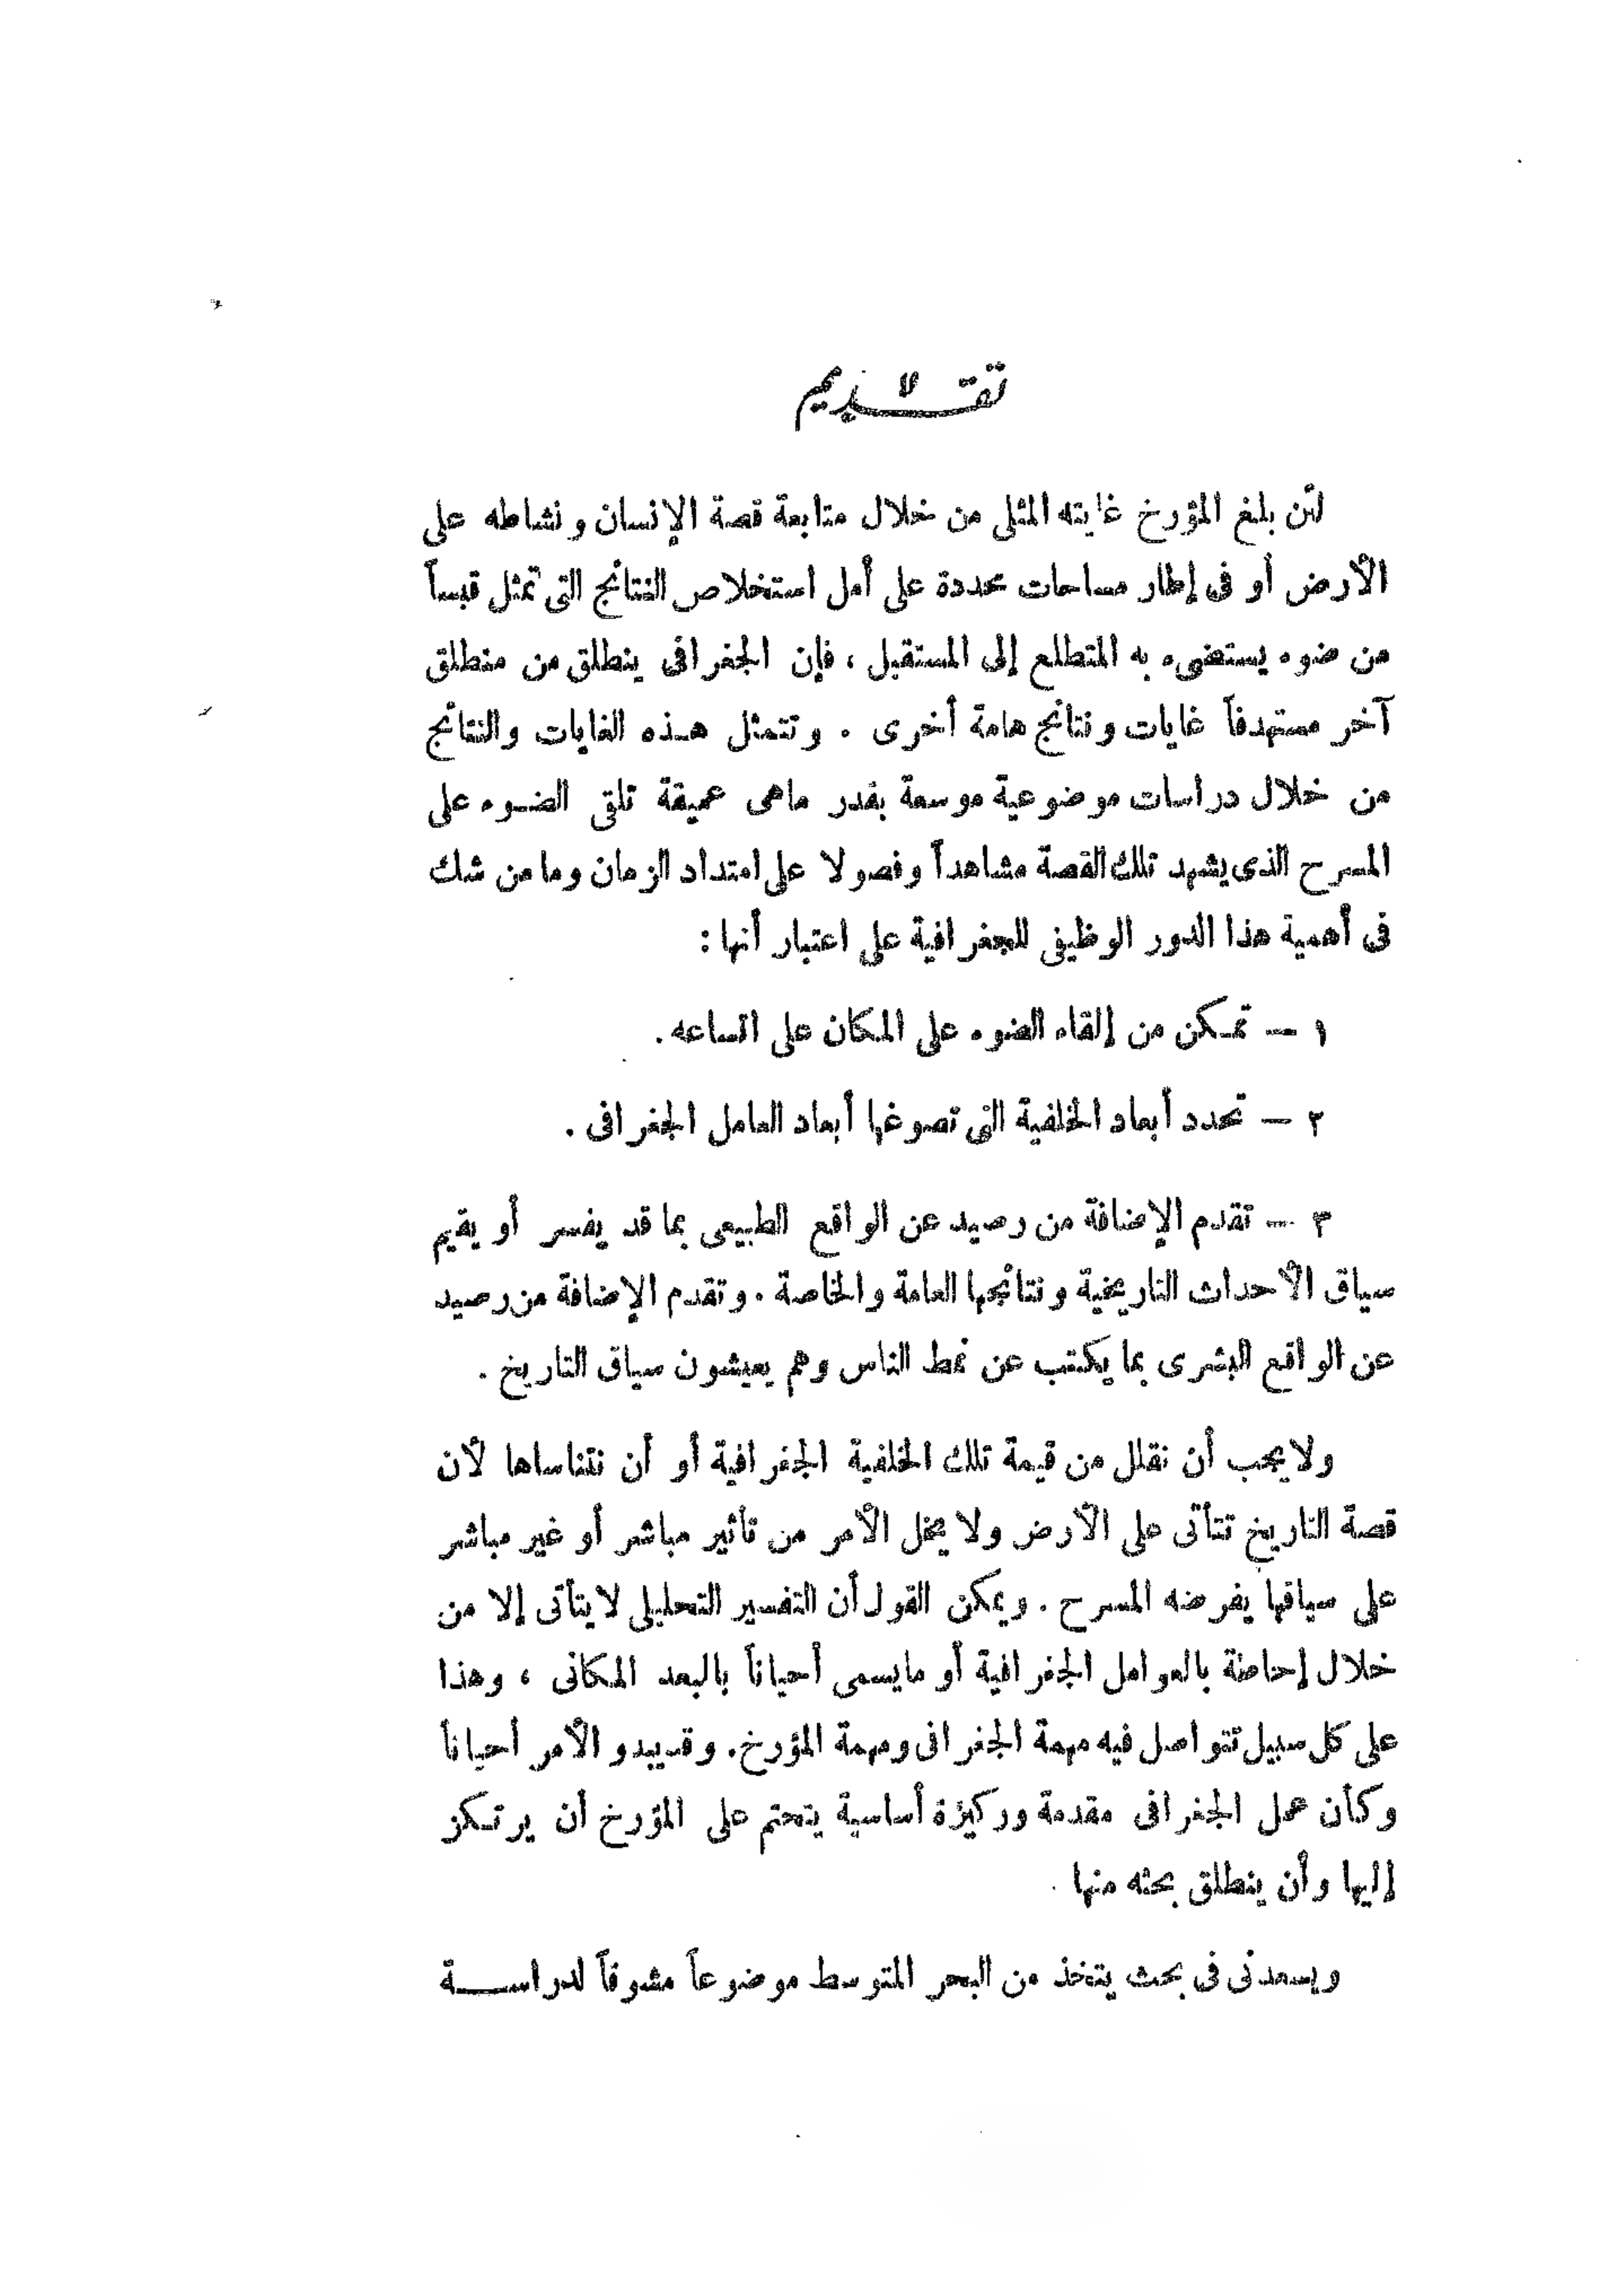 تقديم
لئن بلغ المؤرخ غايته المثلى من خلال متابعة قصة الإنسان ونشاطه على
الأرض أو فى إطار مساحات محددة على أمل استخلاص النتائج التى تمثل قبساً
من ضوء يستضىء به المتطلع إلى المستقبل ، فإن الجغرافى ينطلق من منطلق
آخر مستهدفاً غايات ونتائج هامة أخرى . وتتمثل هذه الغايات والنتائج
من خلال دراسات موضوعية موسعة بقدر ماهى عميقة تلقى الضوء على
المسرح الذى يشهد تلك القصة مشاهداً وفصولا على امتداد الزمان وما من شك
فى أهمية هذا الدور الوظيفى للجغرافية على اعتبار أنها :
١ — تمكن من إلقاء الضوء على المكان على اتساعه .
٢ — تحدد أبعاد الخلفية التى تصوغها أبعاد العامل الجغرافى .
٣ — تقدم الإضافة من رصيد عن الواقع الطبيعى بما قد يفسر أو يقيم
سياق الأحداث التاريخية ونتائجها العامة والخاصة . وتقدم الإضافة من رصيد
عن الواقع البشرى بما يكتب عن نمط الناس وهم يعيشون سياق التاريخ .
ولا يجب أن نقلل من قيمة تلك الخلفية الجغرافية أو أن نتناساها لأن
قصة التاريخ تتأتى على الأرض ولا يخل الأمر من تأثير مباشر أو غير مباشر
على سياقها يفرضه المسرح . ويمكن القول أن التفسير التحليلى لا يتأتى إلا من
خلال إحاطة بالعوامل الجغرافية أو مايسمى أحياناً بالبعد المكانى ، وهذا
على كل سبيل تتواصل فيه مهمة الجغرافى ومهمة المؤرخ. وقد يبدو الأمر أحياناً
وكأن عمل الجغرافى مقدمة وركيزة أساسية يتحتم على المؤرخ أن يرتكز
إليها وأن ينطلق بحثه منها .
ويسعدنى فى بحث يتخذ من البحر المتوسط موضوعاً مشوقاً لدراسة